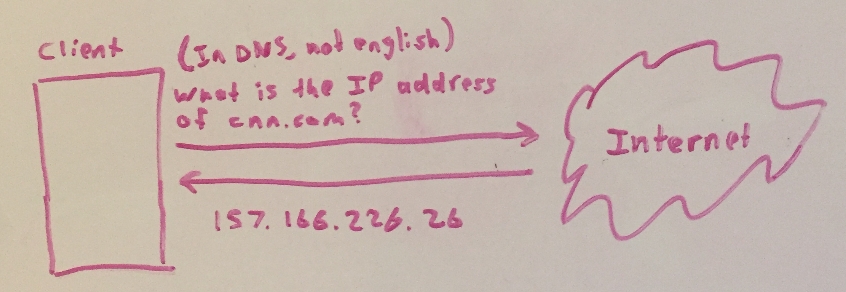 Client
(In DNS, not english)
What is the IP address
of cnn.com?
Internet
157.166.226.26